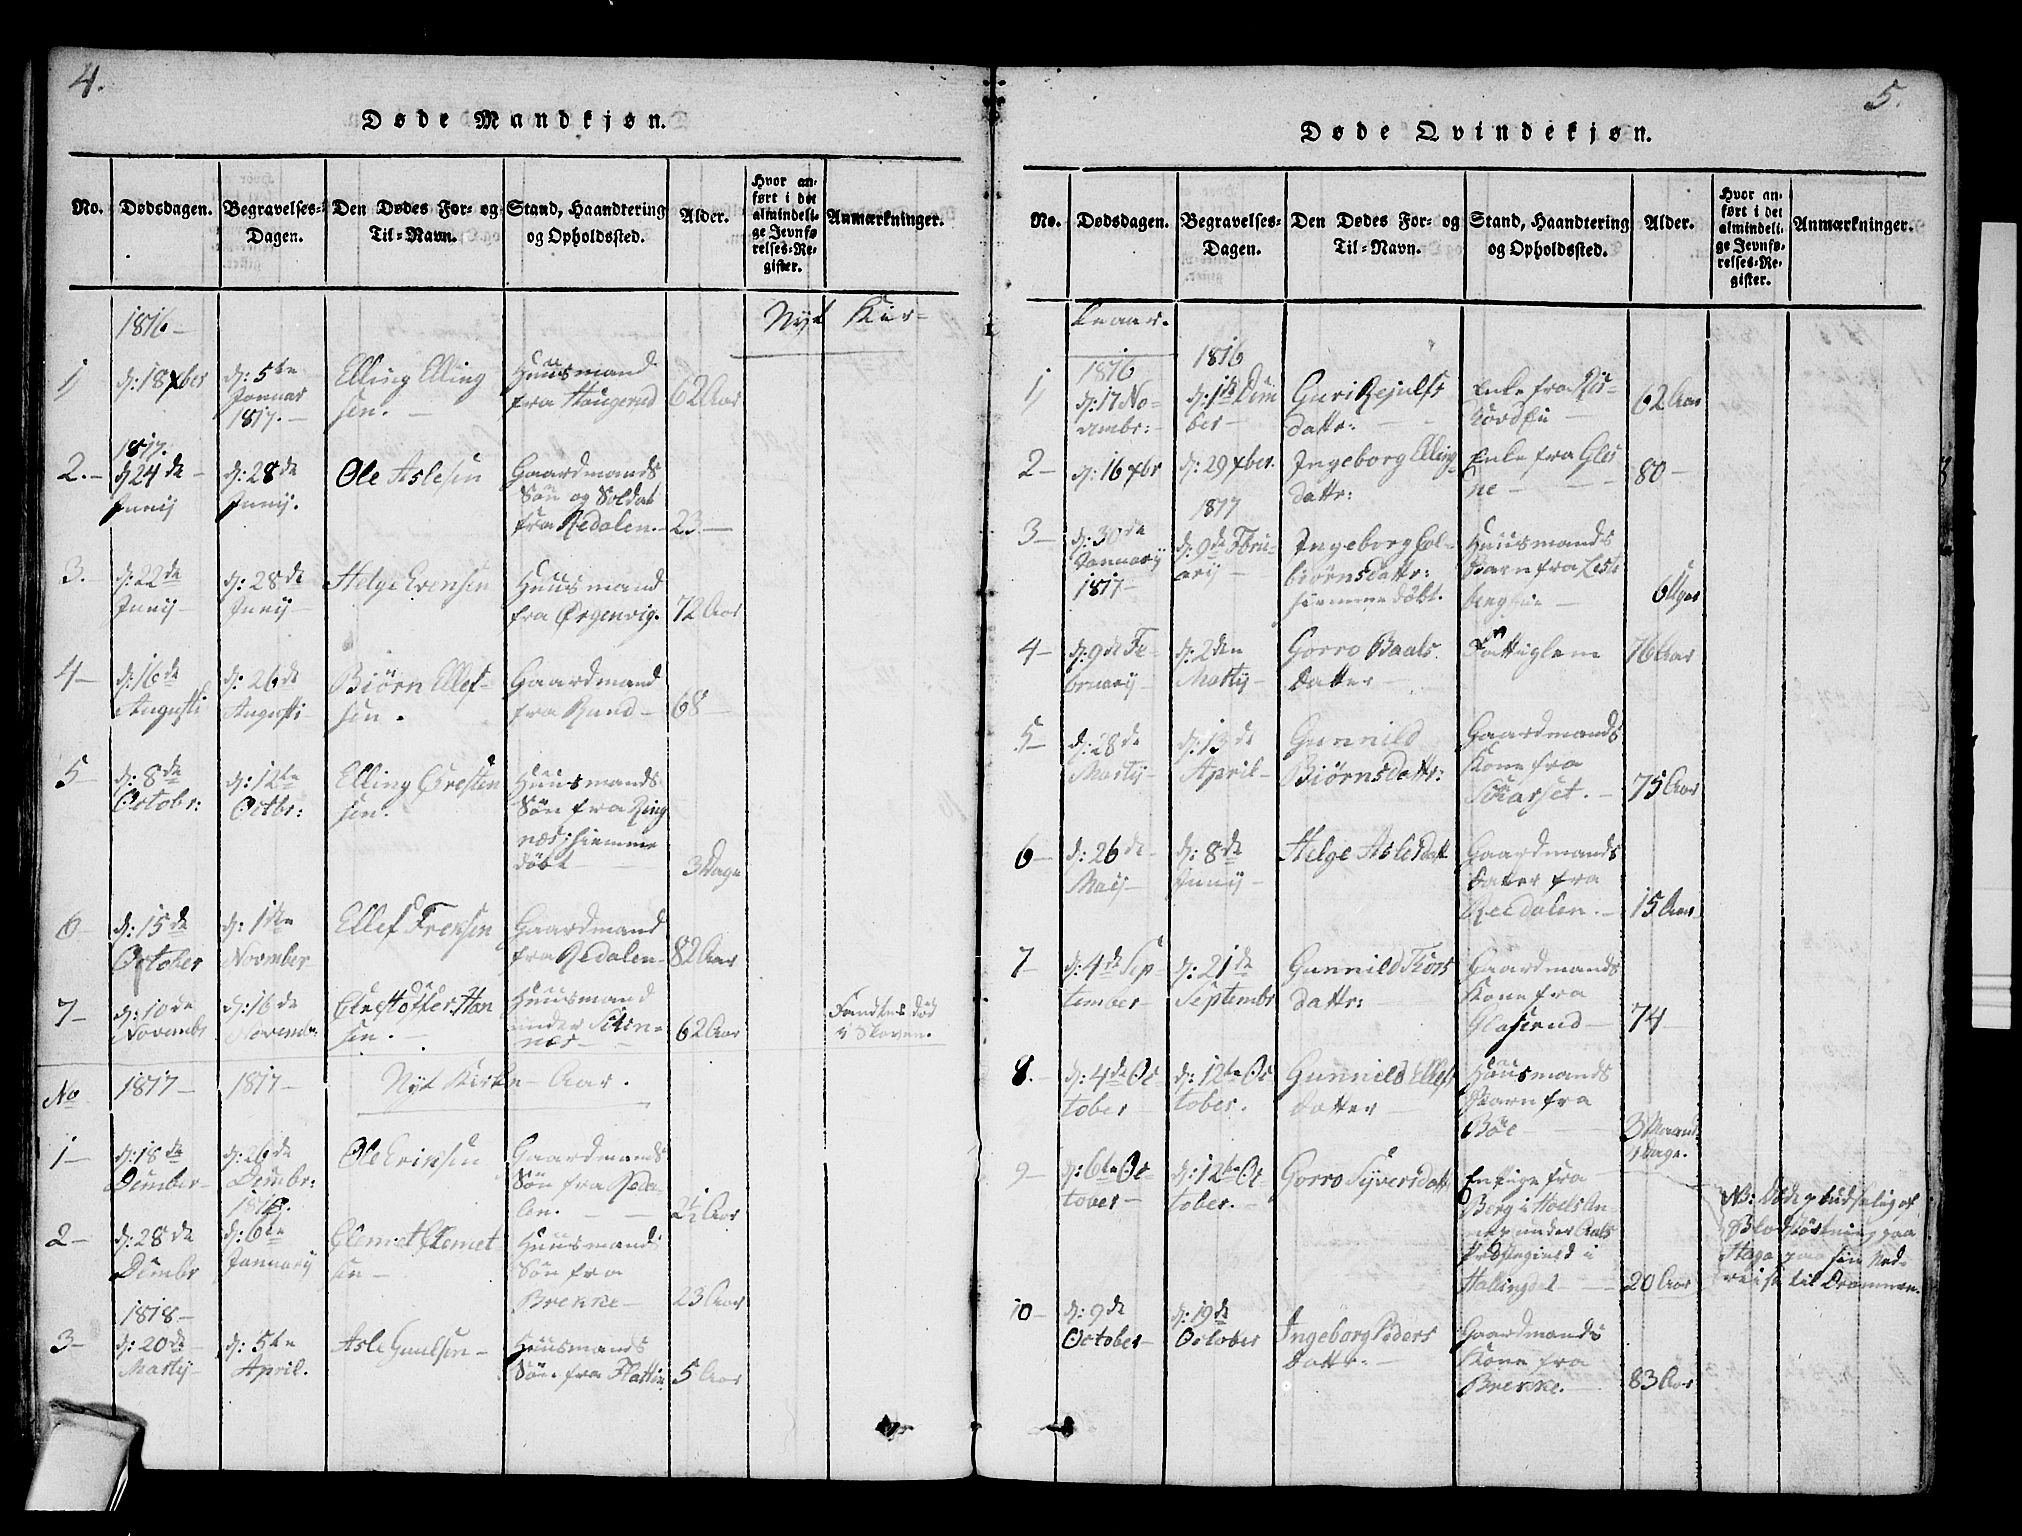 4.
Døde Mandkjøn.
No. Dødsdagen. Begravelses-Dagen. Den Dødes For- og Til-Navn. Stand, Haandtering og Opholdssted. Alder. Hvor anført i det almindelige Jevnførelses-Register. Anmærkninger.
1816 Nyt Kir-
1) d: 18 xber d: 5te Januar 1817. Elling Elling sen. Huusmand fra Haugerud 62 Aar
1817.
2. d 24de Junij d: 28de Junij. Ole Aslesen Gaardmands Søn og Soldat fra Redalen. 23
3. d: 22de Junij d: 28de Junij Helge Evensen Huusmand fra Ørgenvig. 72 Aar
4 d: 16de Augusti d: 26de Augusti Biørn Ellef- sen. Gaardmand fra Rund 68
5 d: 8de Octobr: d: 12te Octbr: Elling Cresten sen. Huusmands Søn fra Ring næs; hiemme døbt 3 Dage
6 d: 15de October d: 1ste November Ellef Frensen Gaardmand fra Redalen 82 Aar
7 d: 10de Novembr d: 16de Novembr. Christoffer Han sen. Huusmand under næs 62 Aar Fandtes død i Skoven.
No 1817 1817 Nyt Kirke-Aar.
1 d: 18de Dember d: 26de Dembr: Ole Erinsen Gaardmands Søn fra Reda- len. 2½ Aar
1818.
2 d: 28de Dembr d: 6te Januarij Clemet Clemet sen Huusmands Søn fra Brekke 23 Aar
1818
3 d: 20de Martij d: 5te April. Asle Huusmands Søn fra 5 Aar
5.
Døde Qvindekjøn.
No. Dødsdagen. Begravelses-Dagen. Den Dødes For- og Til-Navn. Stand, Haandtering og Opholdssted. Alder. Hvor anført i det almindelige Jevnførelses-Register. Anmærkninger.
keaar.
1816 1816
1) d: 17 No- vembr: d: 1ste Dem ber Guri dattr: Enke fra 62 Aar
2 d: 16 xbr d: 29 xber. Ingeborg Elling- dattr: Enke fra Gles ne 80
1817
3 d: 30de Januarij 1817 d: 9de Febru- arij Ingeborg Col- biørnsdattr: hiemmedøbt. Huusmands Barn fra 6 Uger
4 d: 9de Fe- bruarij d: 2den Martij Gorro Baals Datter Fattiglem 76 Aar
5 d: 28de Martij d: 13de April Gunnild Biørnsdattr: Gaardmands Kone fra 75 Aar
6 d: 26de Maij d: 8de Junij Helge Aslesdatt Gaardmands Datter fra Reedalen. 15 Aar
7 d: 4de Sep- tember d: 21de Septembr Gunnild Tors dattr: Gaardmands Kone fra 74
8. d: 4de Oc- tober d: 12te Oc- tober. Gunnild Ellefs Datter Huusmands Barn fra Bøe 3 Dage.
9 d: 6te Oc- tober d: 12te Oc- tober. Gorro Syversdatt En Pige fra Berg i Hoels An- nex under Aals Præstegield i Hallingdal 20 Aar NB: Døde pludselig af Blodstyrtning paa Haga paa sin Ned- reise til Drammen.
10 d: 9de October d: 19de October Ingeborg Peders Dattr: Gaardmands Kone fra Brekke. 83 Aar